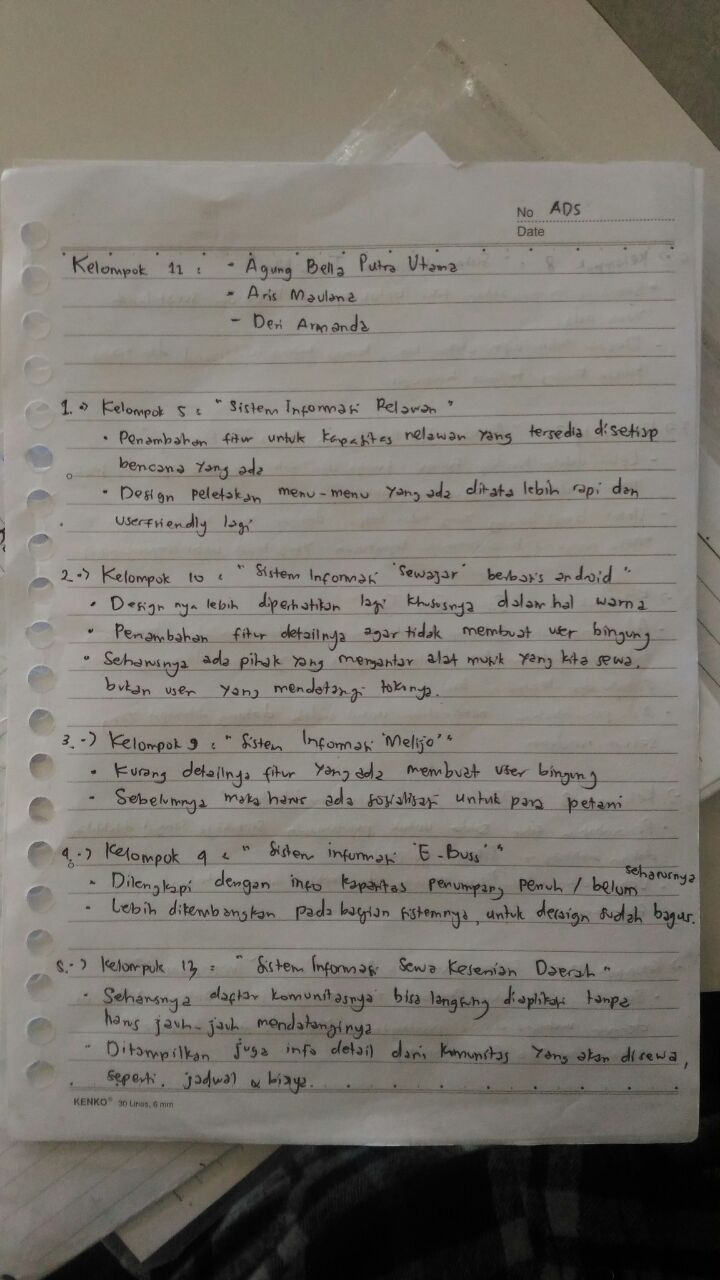 No ADS
Date
Kelompok 11 : - Agung Bella Putra Utama
- Aris Maulana
- Deri Armanda
1. -> Kelompok 5 : "Sistem Informasi Relawan"
• Penambahan fitur untuk kapasitas relawan yang tersedia disetiap
bencana yang ada
• Design peletakan menu-menu yang ada ditata lebih rapi dan
userfriendly lagi
2. -> Kelompok 10 : "Sistem Informasi 'Sewajar' berbasis android"
• Design nya lebih diperhatikan lagi khususnya dalam hal warna
• Penambahan fitur detailnya agar tidak membuat user bingung
• Seharusnya ada pihak yang mengantar alat musik yang kita sewa,
bukan user yang mendatangi tokonya.
3. -> Kelompok 9 : "Sistem Informasi 'Melijo'"
• Kurang detailnya fitur yang ada membuat user bingung
- Sebelumnya maka harus ada sosialisasi untuk para petani
4. -> Kelompok 4 : "Sistem informasi 'E-Buss'"
- Dilengkapi dengan info kapasitas penumpang penuh / belum seharusnya
- Lebih dikembangkan pada bagian sistemnya, untuk desaign sudah bagus.
5. -> Kelompok 13 : "Sistem Informasi Sewa Kesenian Daerah"
- Seharusnya daftar komunitasnya bisa langsung diaplikasi tanpa
harus jauh-jauh mendatanginya
- Ditampilkan juga info detail dari komunitas yang akan disewa,
seperti, jadwal & biaya.
KENKO® 30 Lines, 6 mm